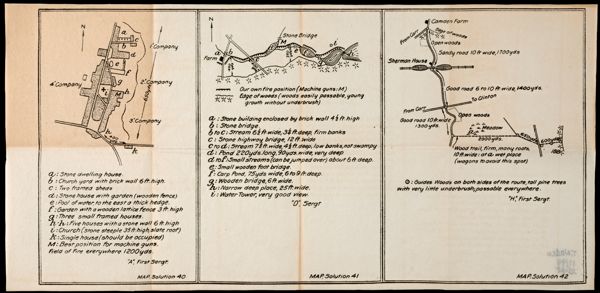 N
1' Company
2' Company
3' Company
4' Company
a: Stone dwelling house.
b: Church yard with brick wall 6 ft. high
c: Two framed sheds
d: Stone house with garden (wooden fence)
e: Pool of water, to the east a thick hedge.
f: Garden with a wooden lattice fence 3 ft. high
g: Three small framed houses.
h-h: Five houses with a stone wall 6 ft. high
i: Church (stone steeple 35 ft high, slate roof)
k: Single house (should be occupied)
M: Best position for machine guns.
Field of fire everywhere 1200 yds.
"A", First Sergt.
MAP, Solution 40
N
Stone Bridge
Farm
Our own fire position (Machine guns: M)
Edge of woods (woods easily passable, young
growth without underbrush)
a: Stone building enclosed by brick wall 4½ ft high
b: Stone bridge.
b to c: Stream 6½ ft wide, 3¼ ft deep, firm banks
c: Stone highway bridge, 12 ft wide
c to d: Stream 7½ ft wide, 4½ ft deep, low banks, not swampy
d: Pond 220 yds long, 90 yds wide, very deep
e: Small wooden foot bridge.
f: Carp Pond, 75 yds wide, 6 to 9 ft deep.
g: Wooden bridge, 6 ft wide.
h: Narrow deep place, 25 ft wide.
i: Water Tower, very good view.
"D", Sergt
MAP, Solution 41
N
Camden Farm
From Carr
Edge of woods
Open woods
Sandy road 10 ft wide, 1700 yds.
Sherman House
Good road 6 to 10 ft wide, 1400 yds.
To Clinton
From Carr
Open woods
Good road 10 ft wide
1300 yds.
Meadow
2600 yds.
Wood trail, firm, many roots,
10 ft wide: at a: wet place
(wagons to avoid this spot)
Woods on both sides of the route, tall pine trees
with very little underbrush, passable everywhere.
"H", First Sergt.
MAP, Solution 42